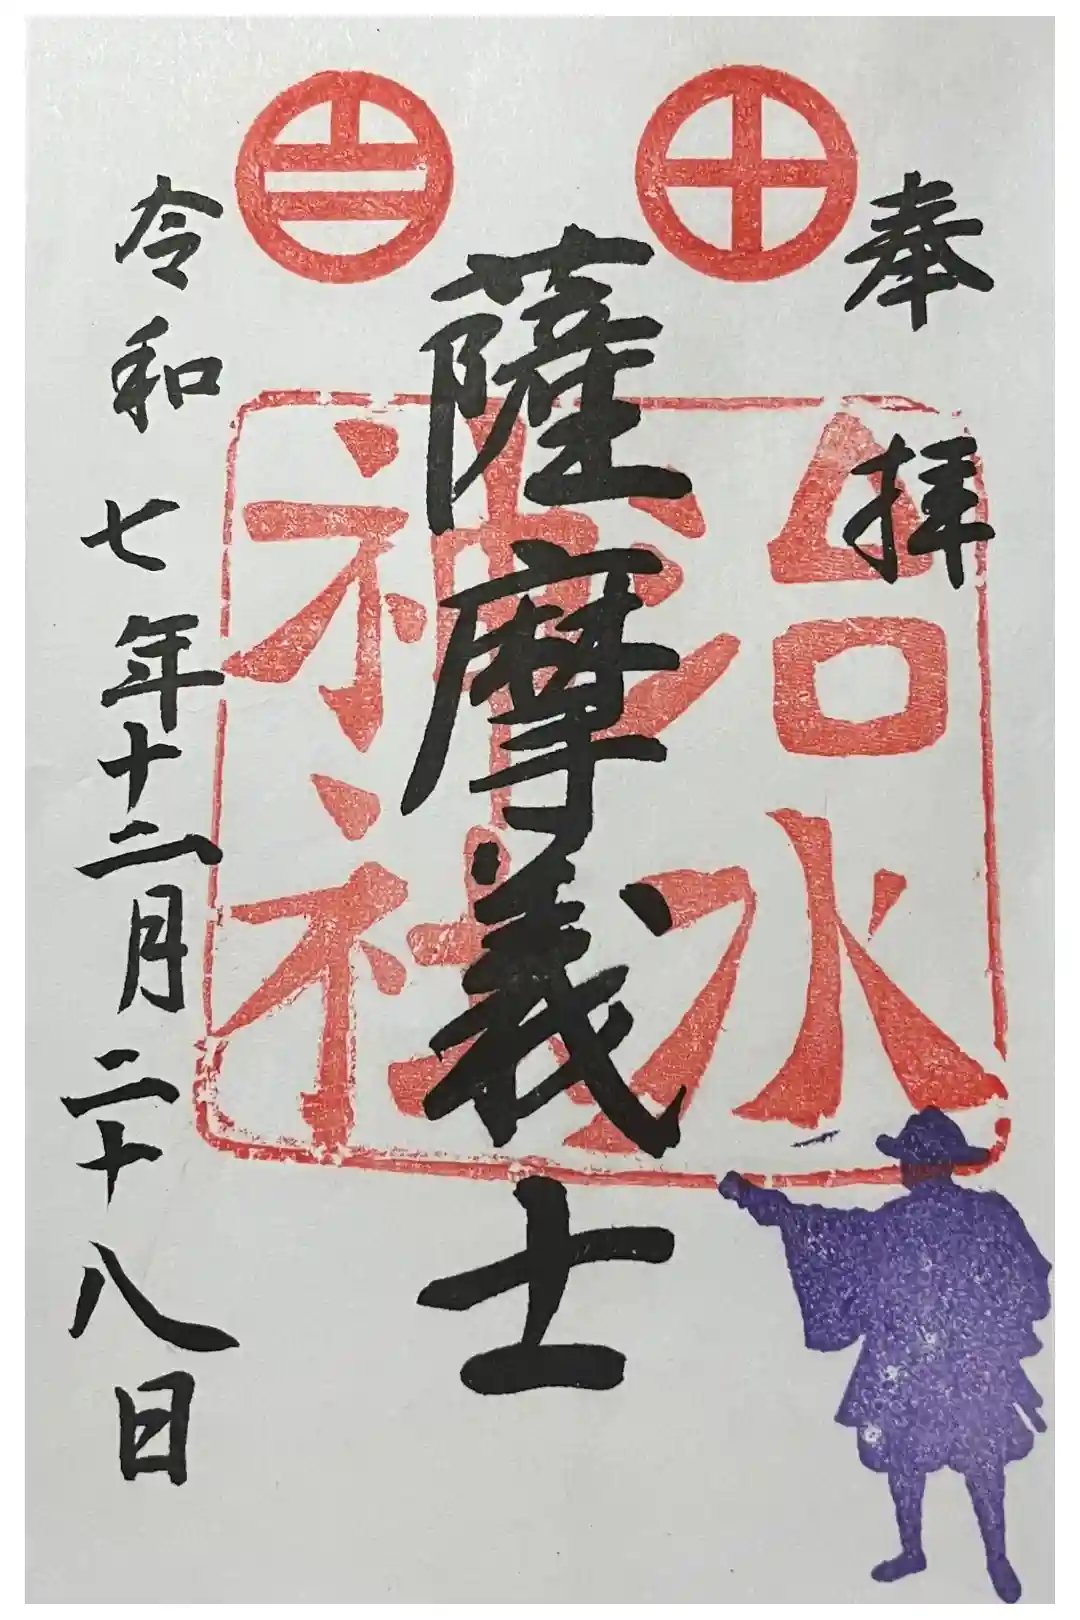 奉拝
治水
神社
薩摩義士
令和七年十二月二十八日